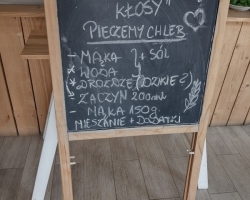 KŁOSY"
PIECZEMY CHLEB
- MĄKA + SÓL
* WODA
* DROŻDŻE (DZIKIE ?)
ZACZYN 200ml
- MĄKA 150g
MIESZANIE + DODATKI